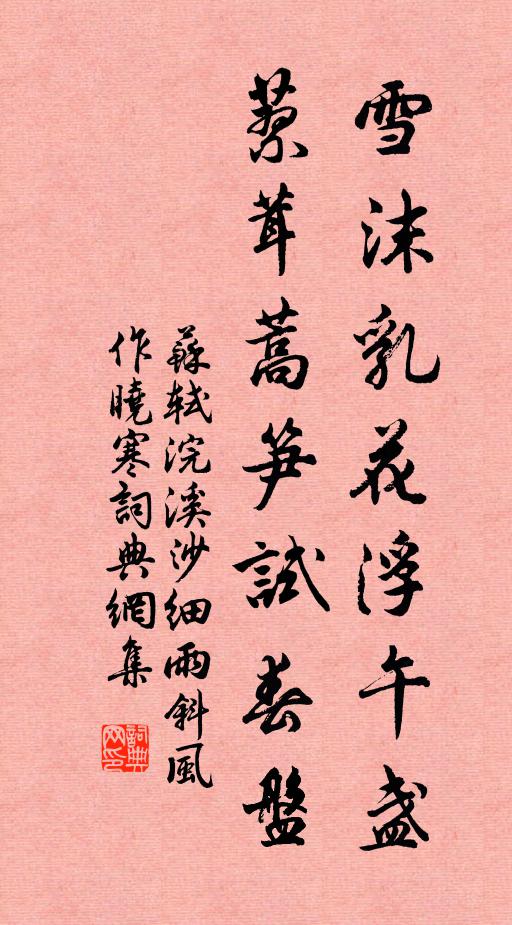 雪沫乳花浮午盞
蓼茸蒿筍試春盤
蘇軾浣溪沙細雨斜風
作曉寒詞典網集
詞典
网印